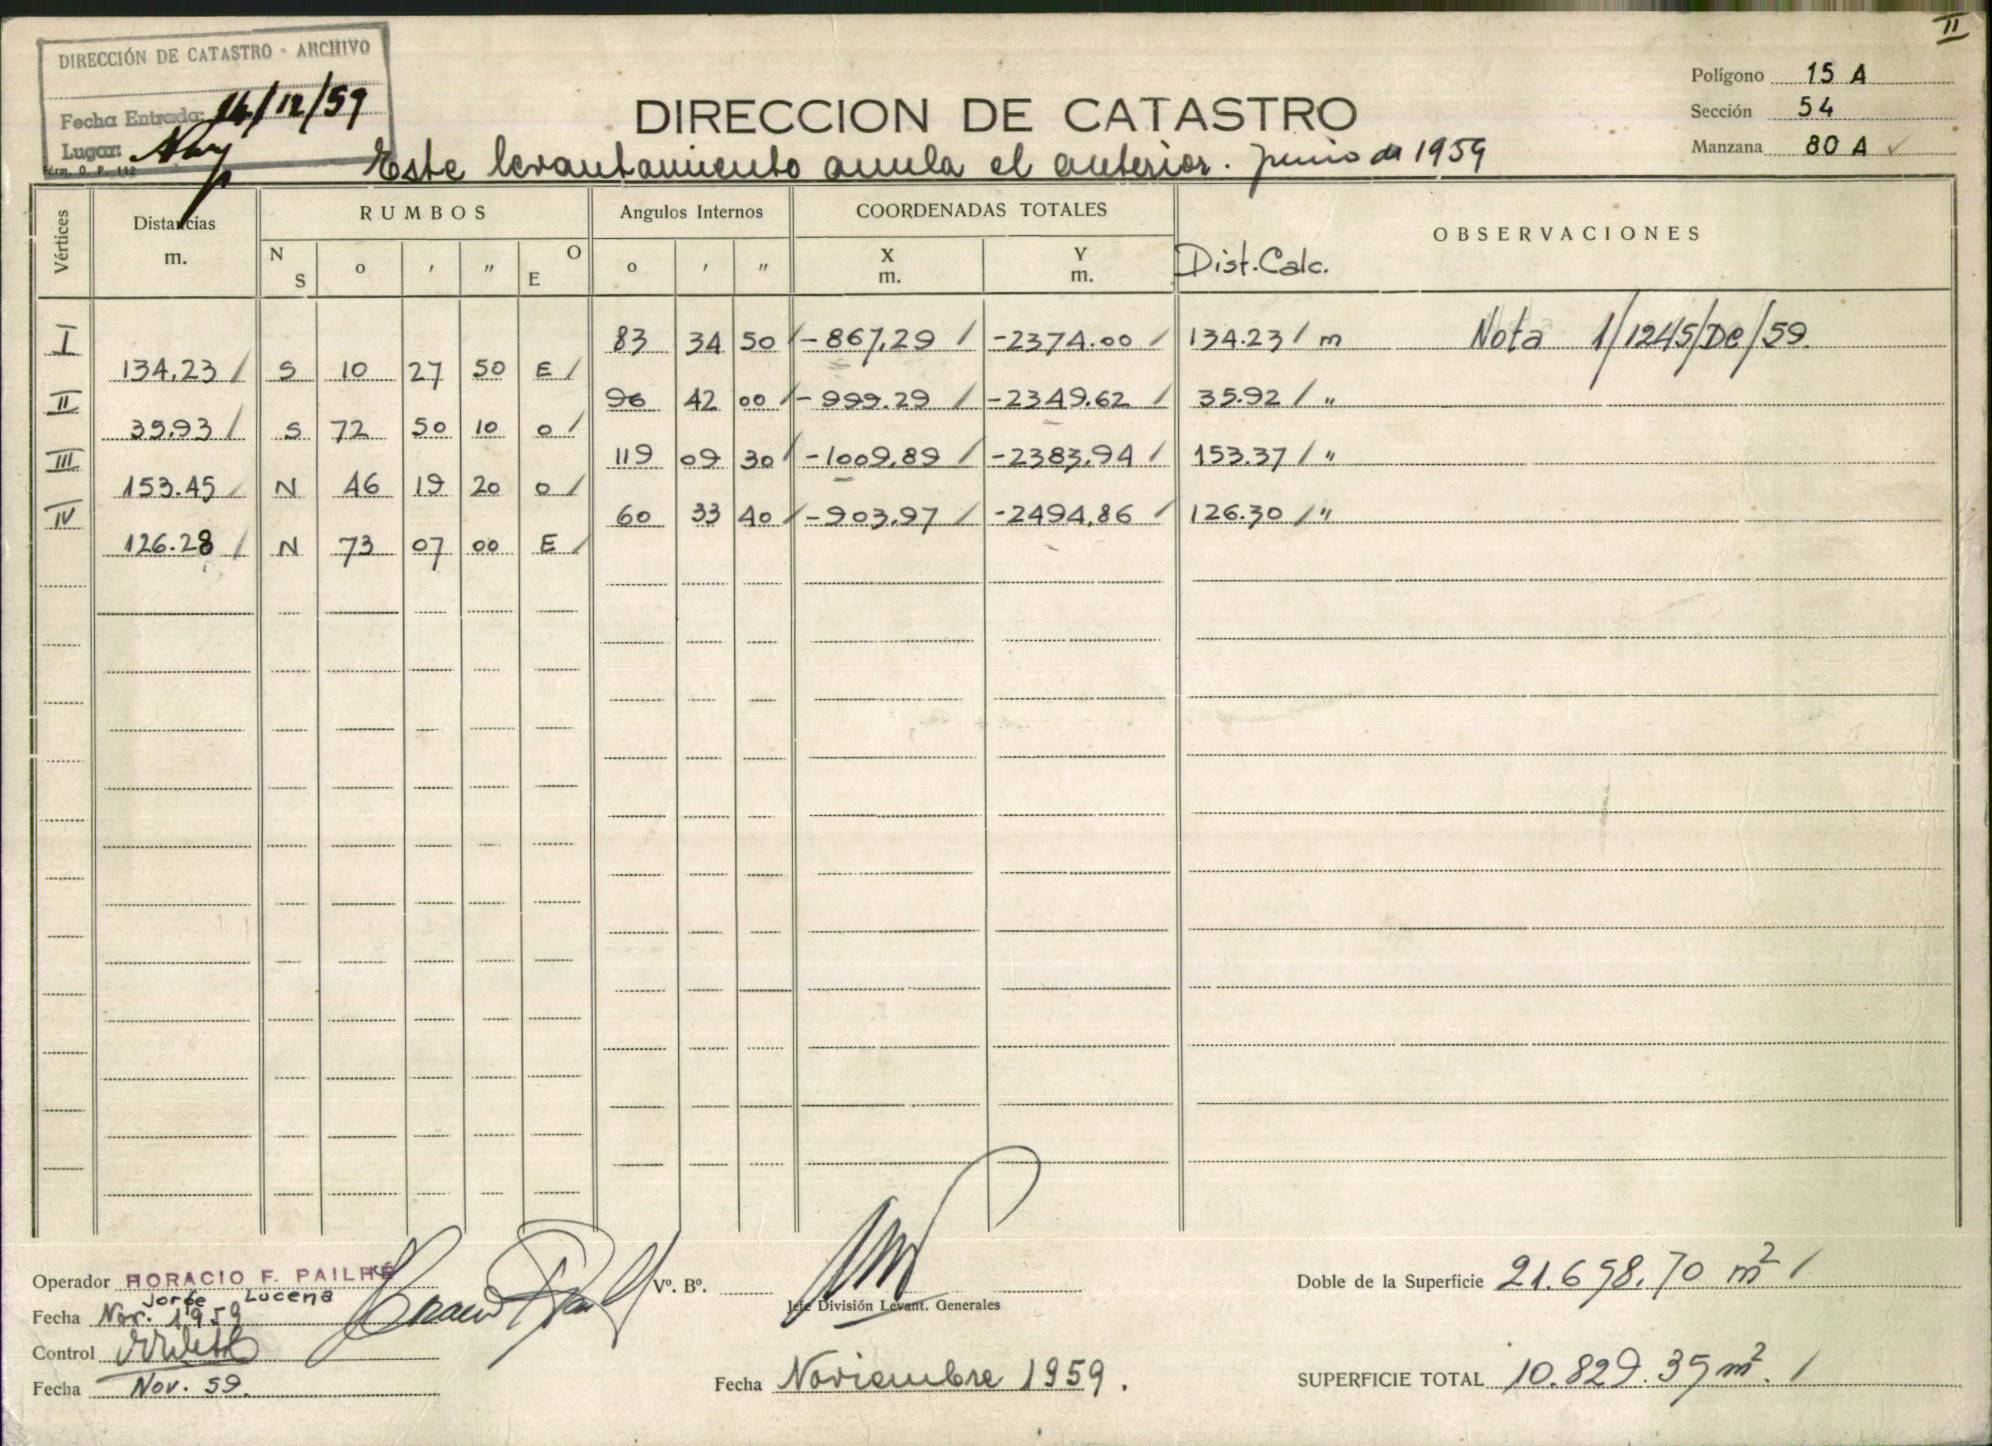 II
DIRECCIÓN DE CATASTRO - ARCHIVO
Fecha Entrada: 14/12/59
Lugar:
Form. O. P. 112
DIRECCION DE CATASTRO
Este levantamiento anula el anterior. junio de 1959
Polígono 15 A
Sección 54
Manzana 80 A ✓
Vértices
Distancias m.
RUMBOS
Angulos Internos
COORDENADAS TOTALES
OBSERVACIONES
N S o ' " O E
o ' "
X m.
Y m.
Dist. Calc.
I 83 34 50 / -867,29 / -2374.00 / 134.23 / m Nota 1/1245/De/59.
134,23 / S 10 27 50 E /
II 96 42 00 / -999.29 / -2349.62 / 35.92 / "
35,93 / S 72 50 10 O /
III 119 09 30 / -1009,89 / -2383,94 / 153.37 / "
153.45 / N 46 19 20 O /
IV 60 33 40 / -903,97 / -2494,86 / 126.30 / "
126.28 / N 73 07 00 E /
Operador HORACIO F. PAILHÉ
Jorge Lucena
Fecha Nov. 1959
Control
Fecha Nov. 59.
Vº. Bº.
Jefe División Levant. Generales
Fecha Noviembre 1959.
Doble de la Superficie 21.658,70 m² /
SUPERFICIE TOTAL 10.829.35 m². /